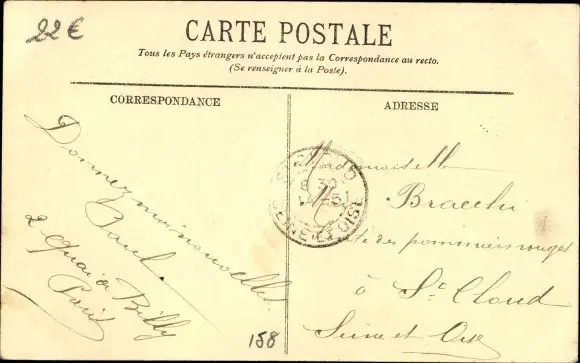 22 €
CARTE POSTALE
Tous les Pays étrangers n'acceptent pas la Correspondance au recto.
(Se renseigner à la Poste).
CORRESPONDANCE
ADRESSE
Donnez moi nouvelles
Paul
2 Quai Billy
Paris
158
ST CLOUD
SEINE-ET-OISE
Mademoiselle
Bracchi
des pommiers rouges
à St Cloud
Seine et Oise